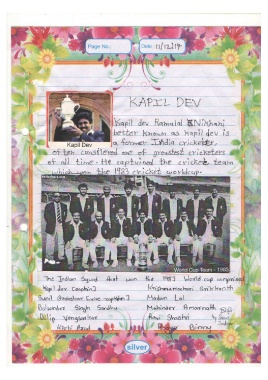 Page No.:
Date: 11/12/17
KAPIL DEV
Kapil dev Ramlal Nikhanj
better known as kapil dev is
a former India cricketer,
Kapil Dev
often considered one of greatest cricketers
of all time. He captained the cricket team
which won the 1983 cricket worldcup.
World Cup Team - 1983
The Indian Squad that won the 1983 World cup comprised
Kapil dev (captain) Krishnamachari Srikkanth
Sunil Gavaskar Madan Lal
Balwinder Singh Sandhu Mohinder Amarnath
Dilip Vengsarkar Ravi Shastri
Kirti Azad Roger Binny
silver